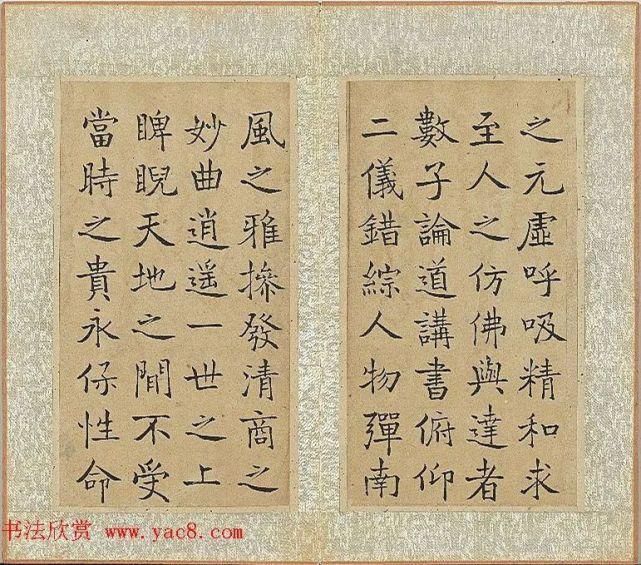 之元虛呼吸精和求
至人之仿佛與達者
數子論道講書俯仰
二儀錯綜人物彈南
風之雅操發清商之
妙曲逍遥一世之上
睥睨天地之間不受
當時之責永保性命
书法欣赏 www.yac8.com